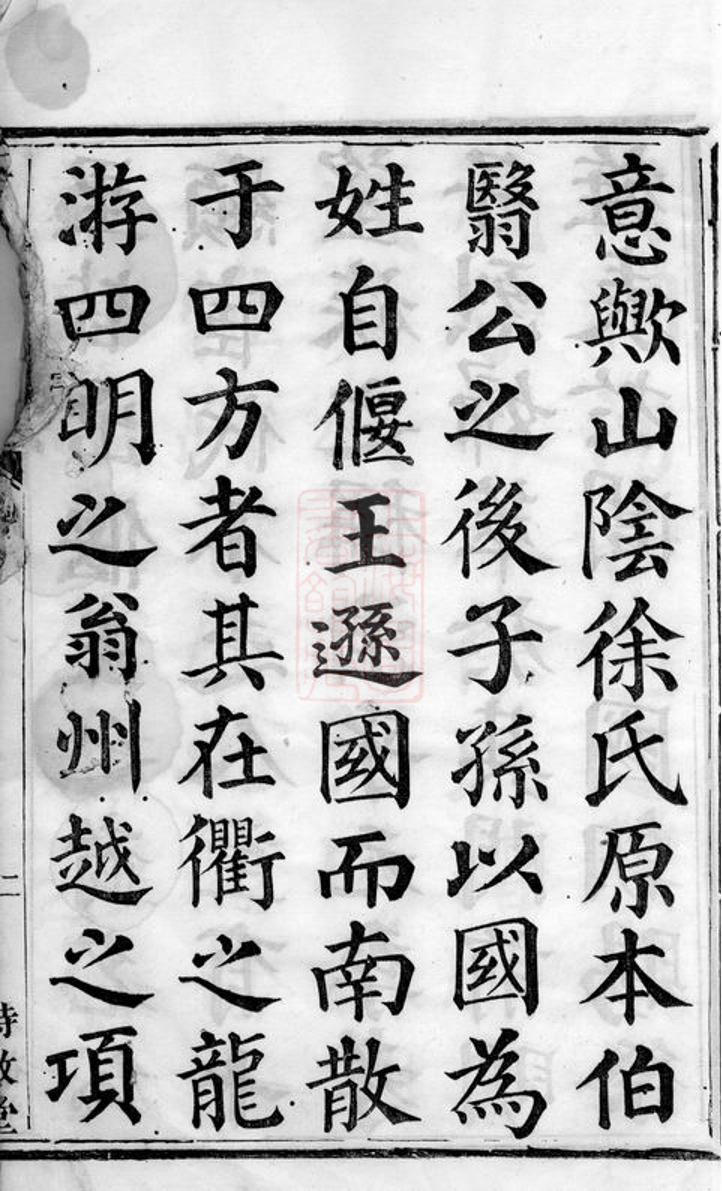 意歟山陰徐氏原本伯
翳公之後子孫以國為
姓自偃王遜國而南散
于四方者其在衢之龍
游四明之翁州越之項
二